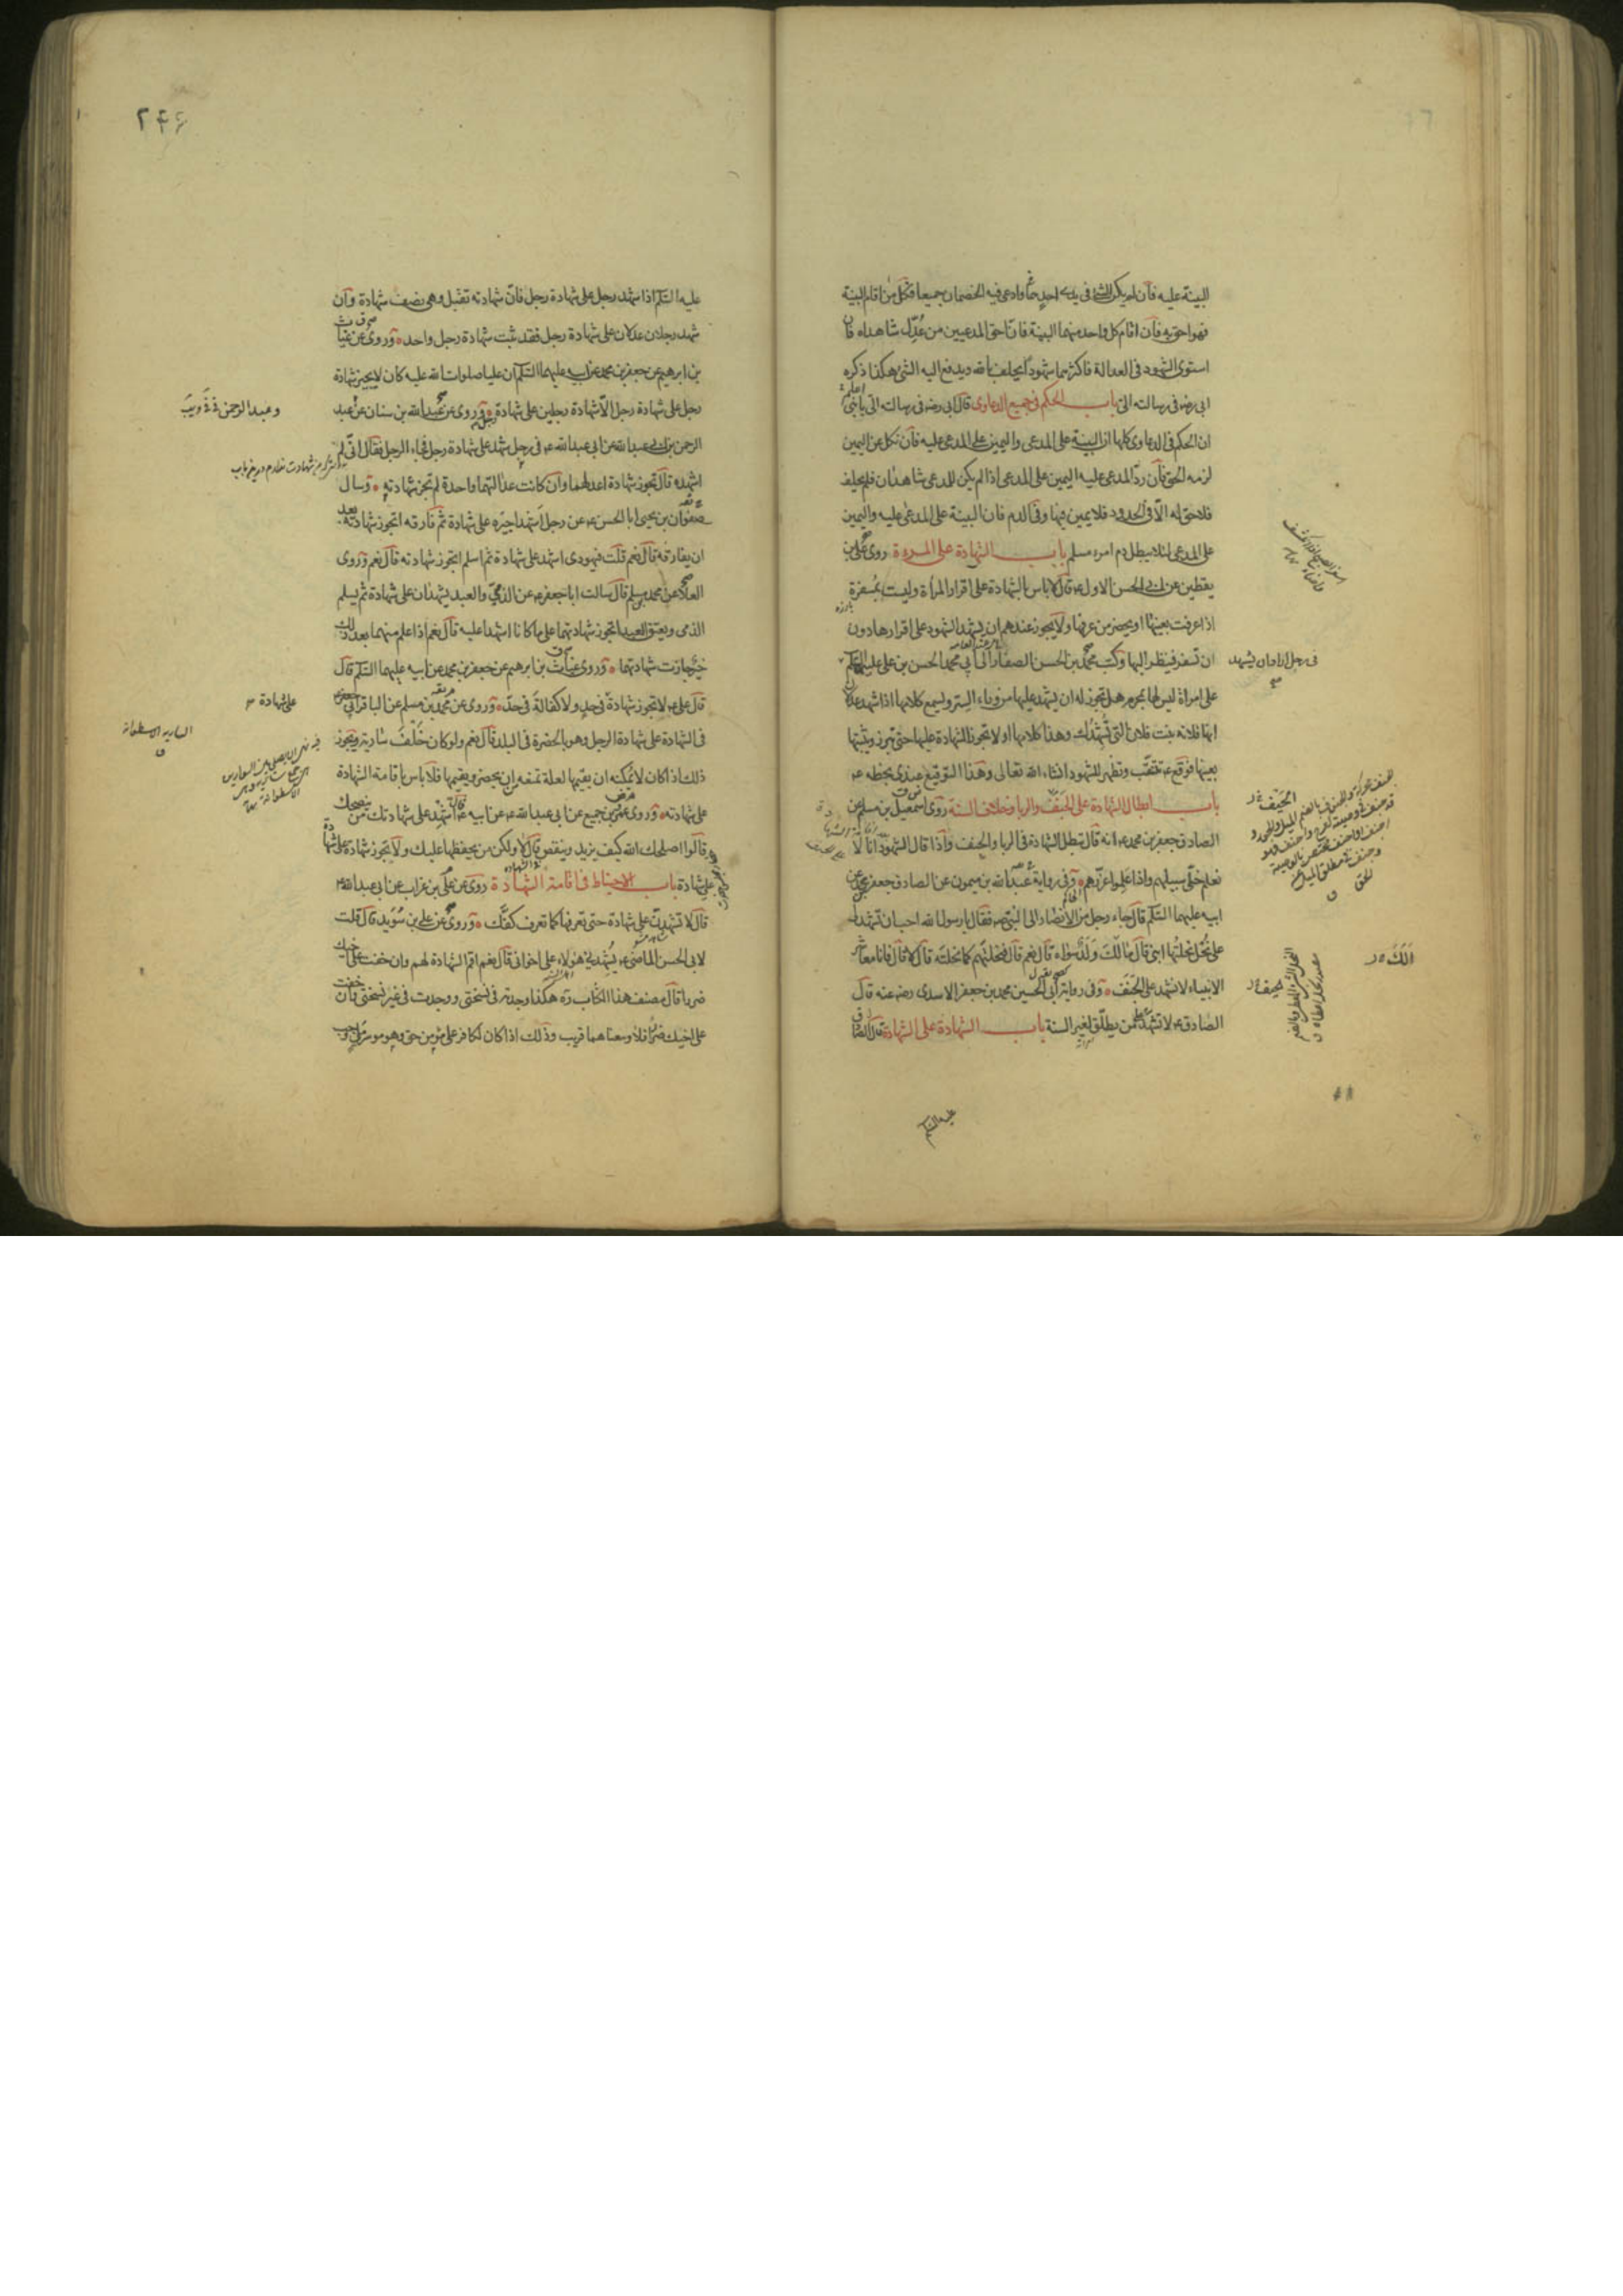 البينة عليه فان لم يكن الشئ فى يدى احد منهما وادعى فيه الخصمان جميعا فكل من اقام البينة
فهو احق به فان اقام كل واحد منهما البينة فان احق المدعيين من عدل شاهداه فان
استوى الشهود فى العدالة فاكثرهما شهودا يحلف بالله ويدفع اليه الشئ هكذا ذكره
ابى رضه فى رسالته الى باب الحكم فى جميع الدعاوى قال ابى رضه فى رسالته الى يا بنى اعلم
ان الحكم فى الدعاوى كلها ان البينة على المدعى واليمين على المدعى عليه فان نكل عن اليمين
لزمه الحق فان رد المدعى عليه اليمين على المدعى اذا لم يكن للمدعى شاهدان فلم يحلف
فلا حق له الا فى الحدود فلا يمين فيها وفى الدم فان البينة على المدعى عليه واليمين
على المدعى لئلا يبطل دم امرء مسلم باب الشهادة على المرءة روى على بن
يقطين عن ابى الحسن الاول ع قال لا باس بالشهادة على اقرار المرأة وليست بمسفرة
اذا عرفت بعينها او يحضر من عرفها ولا يجوز عندهم ان يشهد الشهود على اقرارها دون
ان تسفر فينظر اليها وكتب محمد بن الحسن الصفار الى ابى محمد الحسن بن على عليهما السلم
فى رجل اراد ان يشهد
على امراة ليس لها بمحرم هل يجوز له ان يشهد عليها من وراء الستر ويسمع كلامها اذا شهد عدلان
انها فلانة بنت فلان التى تشهدك وهذا كلامها او لا تجوز الشهادة عليها حتى تبرز ويثبتها
بعينها فوقع ع تتنقب وتظهر للشهود انشاء الله تعالى وهذا التوقيع عندى بخطه ع
باب ابطال الشهادة على الجنف والربا وخلاف السنة روى اسمعيل بن مسلم عن
الصادق جعفر بن محمد ع انه قال تبطل الشهادة فى الربا والجنف واذا قال الشهود انا لا
نعلم خلى سبيلهم واذا علموا عزرهم وفى رواية عبد الله بن ميمون عن الصادق جعفر بن محمد عن
ابيه عليهما السلم قال جاء رجل من الانصار الى النبى ص فقال يا رسول الله احب ان تشهد لى
على نحل نحلتها ابنى قال مالك ولد سواه قال نعم قال فنحلتهم كما نحلته قال لا قال فانا معاشر
الك
الانبياء لا نشهد على الجنف وفى رواية ابى الحسين محمد بن جعفر الاسدى رضه عنه قال
الصادق ع لا تشهد على من يطلق لغير السنة باب الشهادة على الشهادة قال الصادق
عليه السلم
۲۴۶
عليه السلم اذا شهد رجل على شهادة رجل فان شهادته تقبل وهى نصف شهادة وان
شهد رجلان عدلان على شهادة رجل فقد ثبت شهادة رجل واحد وروى عن غياث
بن ابرهيم عن جعفر بن محمد عن ابيه عليهما السلم ان عليا صلوات الله عليه كان لا يجيز شهادة
رجل على شهادة رجل الا شهادة رجلين على شهادة رجل وروى عن عبد الله بن سنان عن عبد
الرحمن بن ابى عبد الله عن ابى عبد الله ع فى رجل شهد على شهادة رجل فجاء الرجل فقال انى لم
اشهده قال تجوز شهادة اعدلهما وان كانت عدالتهما واحدة لم تجز شهادته وسال
صفوان بن يحيى ابا الحسن ع عن رجل اشهد اجيره على شهادة ثم فارقه اتجوز شهادته بعد
ان يفارقه قال نعم قلت فيهودى اشهد على شهادة ثم اسلم اتجوز شهادته قال نعم وروى
العلا عن محمد بن مسلم قال سالت ابا جعفر ع عن الذمى والعبد يشهدان على شهادة ثم يسلم
الذمى ويعتق العبد اتجوز شهادتهما على ما كانا اشهدا عليه قال نعم اذا علم منهما بعد ذلك
خير جازت شهادتهما وروى غياث بن ابرهيم عن جعفر بن محمد عن ابيه عليهما السلم قال
قال على ع لا تجوز شهادة فى حد ولا كفالة فى حد وروى عن محمد بن مسلم عن الباقر ابى جعفر
على شهادة
فى الشهادة على شهادة الرجل وهو بالحضرة فى البلد قال نعم ولو كان خلف سارية ويجوز
السارية الاسطوانة
ذلك اذا كان لا يمكنه ان يقيمها لعلة تمنعه من ان يحضر ويقيمها فلا باس باقامة الشهادة
على شهادته وروى عن عمرو بن جميع عن ابى عبد الله عن ابيه ع قال اشهد على شهادتك من ينصحك
قالوا اصلحك الله كيف يزيد وينقص قال لا ولكن من يحفظها عليك ولا تجوز شهادة على شهادة
على شهادة باب الاحتياط فى اقامة الشهادة روى عن على بن غراب عن ابى عبد الله ع
قال لا تشهدن على شهادة حتى تعرفها كما تعرف كفك وروى عن على بن سويد قال قلت
لابى الحسن الماضى ع يشهدنى هؤلاء على اخوانى قال نعم اقم الشهادة لهم وان خفت على اخيك
ضررا قال مصنف هذا الكتاب ره هكذا وجدته فى نسختى ووجدت فى غير نسختى وان خفت
على اخيك ضررا فلا ومعناهما قريب وذلك اذا كان لكافر على مؤمن حق وهو موسر ملى وجب